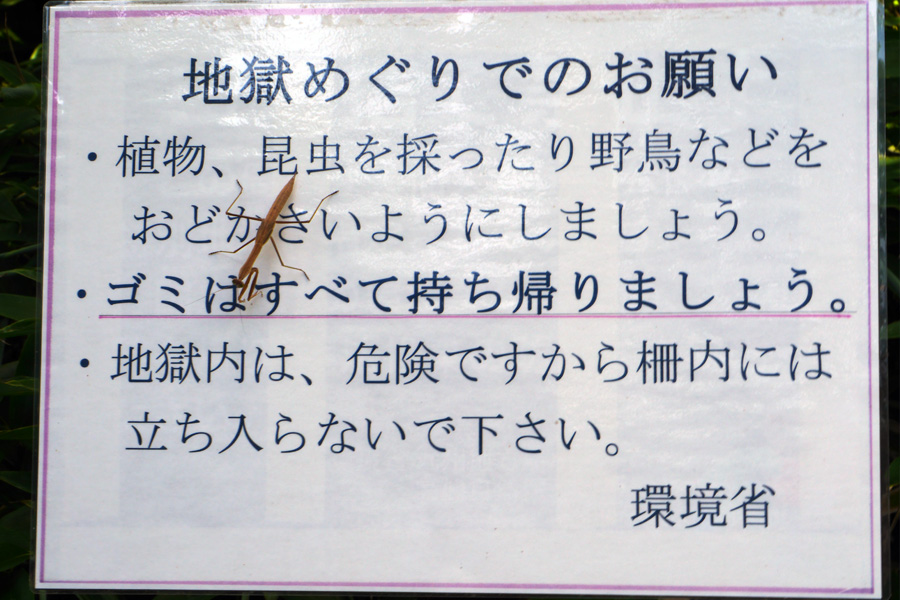 地獄めぐりでのお願い
・植物、昆虫を採ったり野鳥などを
おどかさないようにしましょう。
・ゴミはすべて持ち帰りましょう。
・地獄内は、危険ですから柵内には
立ち入らないで下さい。
環境省